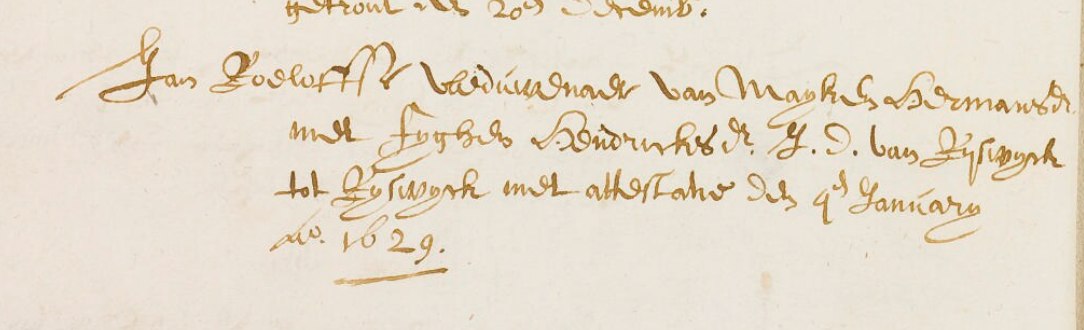 getrout den 20en Decemb.
Jan Roeloffse weduwenaer van Mayken Hermansdr.
met Fyghen Hendrickesdr. J. D. van Ryswyck
tot Ryswyck met attestatie den 4en January
Ao. 1629.